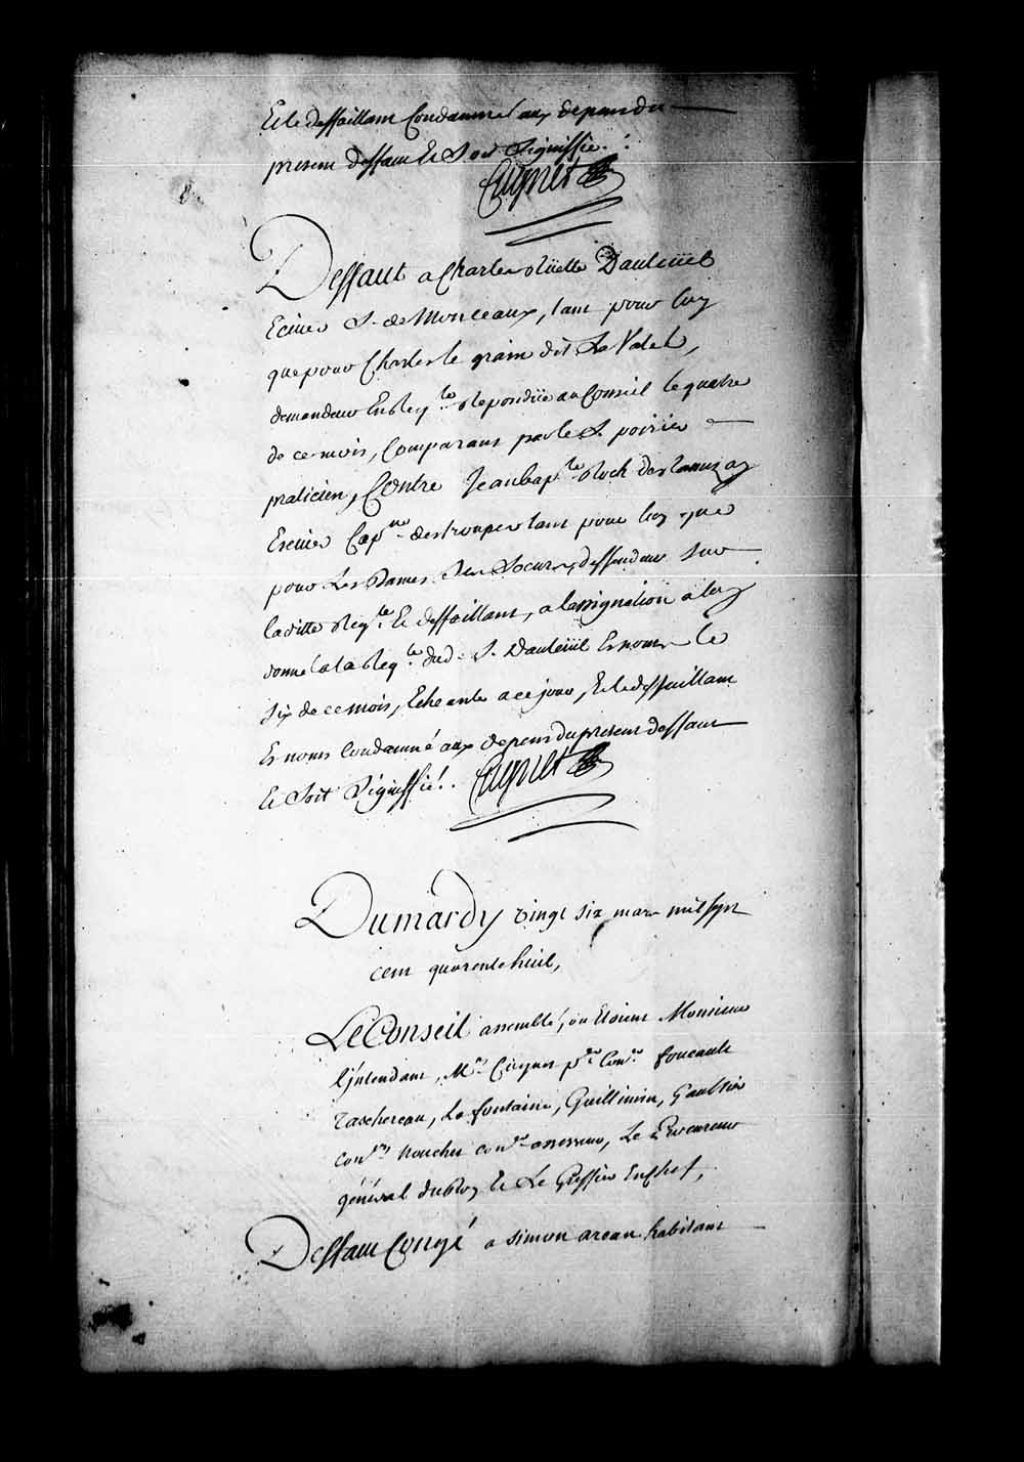 Et le deffaillant Condamné aux depens du
present deffaut Et Soit Signiffié.
Cugnet
Deffaut a Charles Rüette Dauteüil
Ecuier S. de Monceaux, tant pour luy
que pour Charles le grain dit La Valeé,
demandeur En Req.te Repondüe au Conseil le quatre
de ce mois, Comparant par le S. poirier
praticien, Contre Jean bap.te Roch de Ramzay
Ecuier Cap.ne des troupes tant pour luy que
pour Les Dames Ses Soeurs, deffendeur Sur
laditte Req.te Et deffaillant, a lassignation a luy
donneé a la Req.te dud. S. Dauteüil Es noms le
Six de ce mois, Echeante a ce jour, Et le deffaillant
Es noms Condamné aux depens du present deffaut
Et Soit Signiffié.
Cugnet
Du mardy vingt six mars mil sept
cent quarente huit,
Le Conseil assemblé, ou Etoient Monsieur
L'jntendant, M.rs Cugnet p.er Con.er foucault
Taschereau, La fontaine, Guillimin, Gaultier
Con.ers Nouchet con.er assesseur, Le Procureur
général du Roy Et Le Greffier En chef,
Deffaut Congé a Simon areau habitant